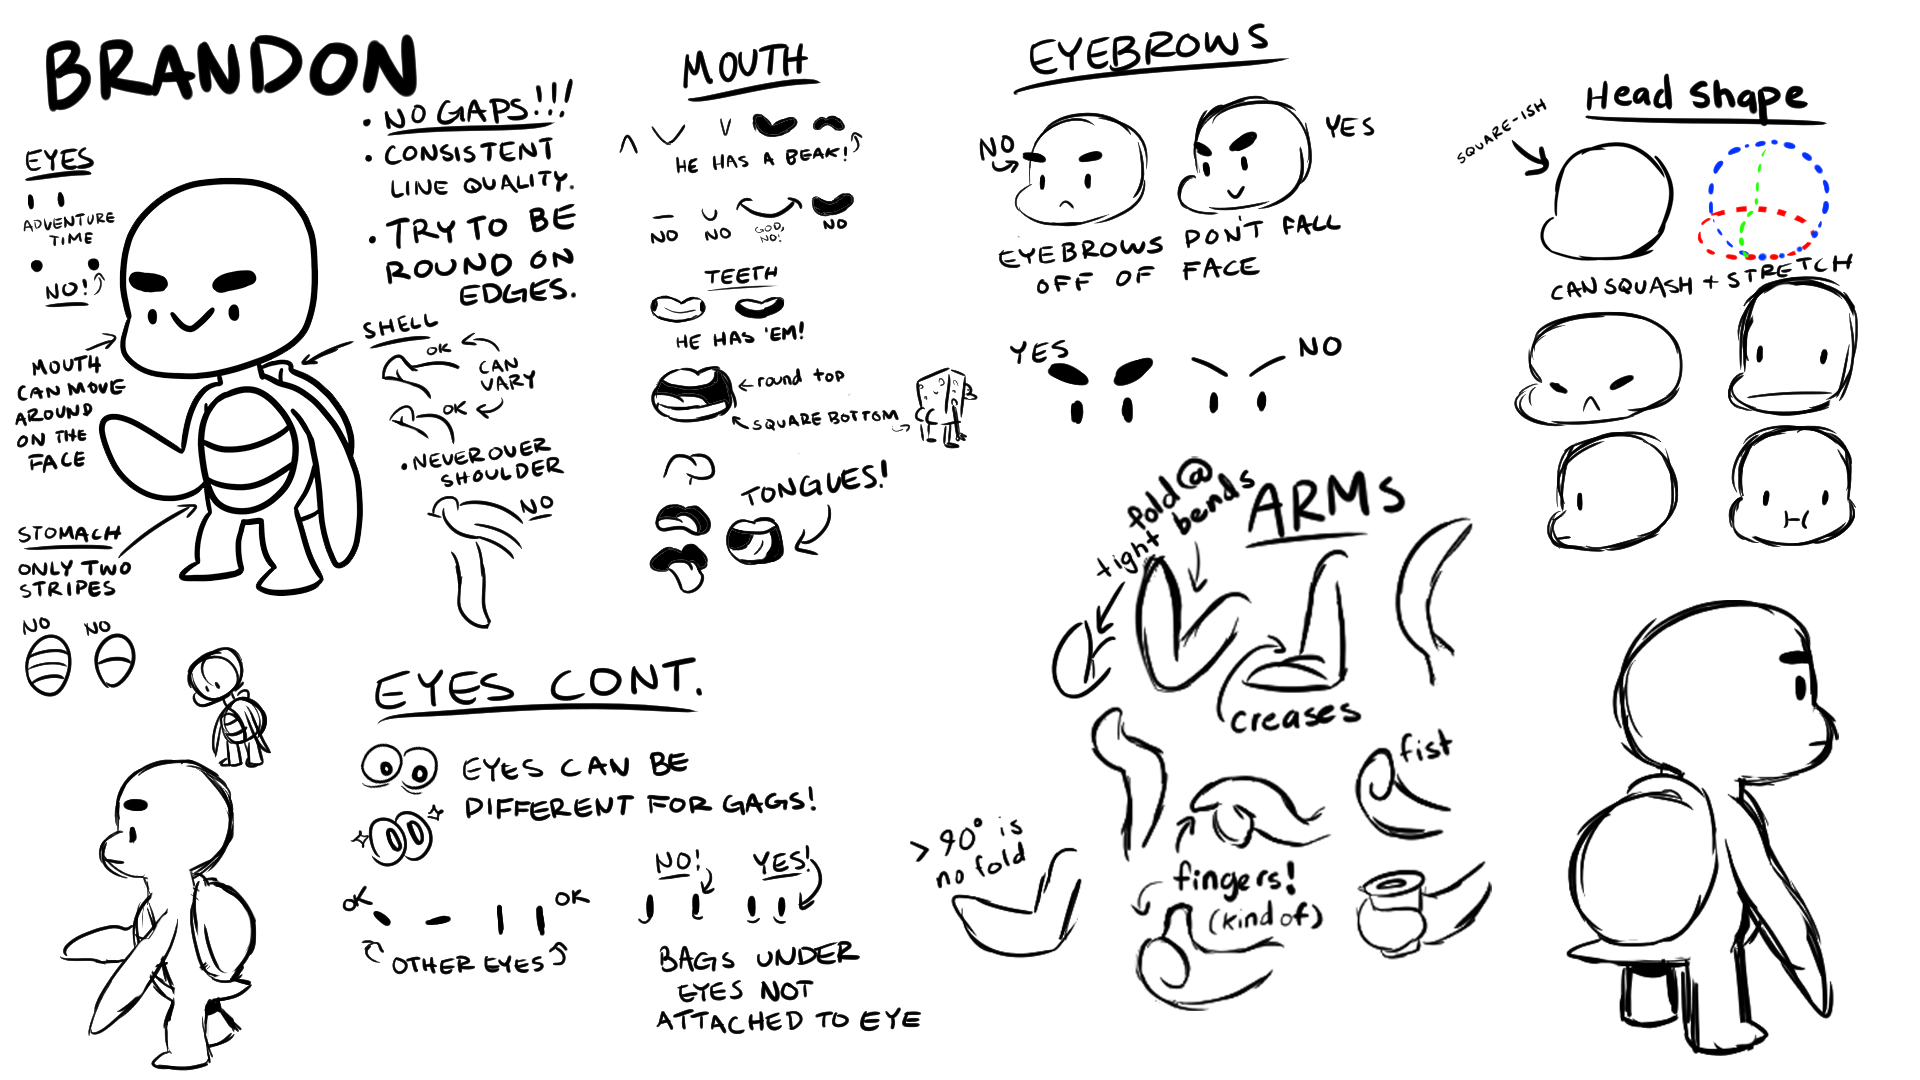 BRANDON
EYES
ADVENTURE
TIME
NO!
MOUTH
CAN MOVE
AROUND
ON THE
FACE
STOMACH
ONLY TWO
STRIPES
NO
NO
• NO GAPS!!!
• CONSISTENT
LINE QUALITY.
• TRY TO BE
ROUND ON
EDGES.
SHELL
OK
CAN
VARY
OK
• NEVER OVER
SHOULDER
NO
MOUTH
HE HAS A BEAK!
NO
NO
GOD,
NO!
NO
TEETH
HE HAS 'EM!
round top
SQUARE BOTTOM
TONGUES!
EYEBROWS
NO
YES
EYEBROWS DON'T FALL
OFF OF FACE
YES
NO
Head Shape
SQUARE-ISH
CAN SQUASH + STRETCH
ARMS
fold @
tight bends
creases
fist
> 90° is
no fold
fingers!
(kind of)
EYES CONT.
EYES CAN BE
DIFFERENT FOR GAGS!
OK
OK
OTHER EYES
NO!
YES!
BAGS UNDER
EYES NOT
ATTACHED TO EYE